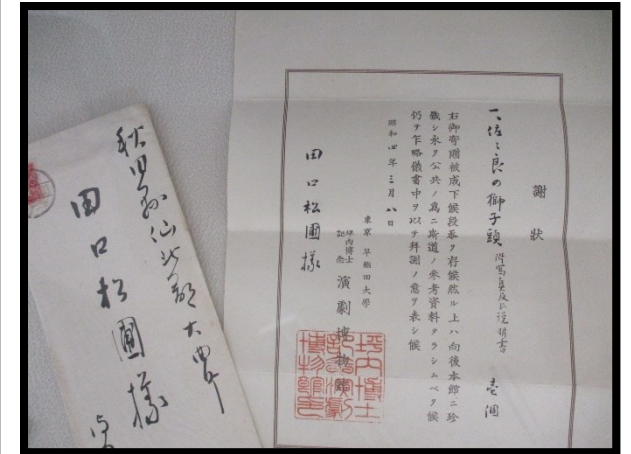 謝狀
一、佐々良の獅子頭 附寫眞及ビ説明書 壱個
右御寄贈被成下候段奉多謝候然ル上ハ向後本館ニ珍
藏シ永ク公共ノ爲ニ斯道ノ參考資料タラシムベク候
仍テ乍略儀書中ヲ以テ拜謝ノ意ヲ表シ候
昭和四年三月八日
東京 早稲田大學
坪内博士記念 演劇博物館
田口松圃様
坪内博士記念演劇博物館印
秋田縣仙北郡大曲町
田口松圃様